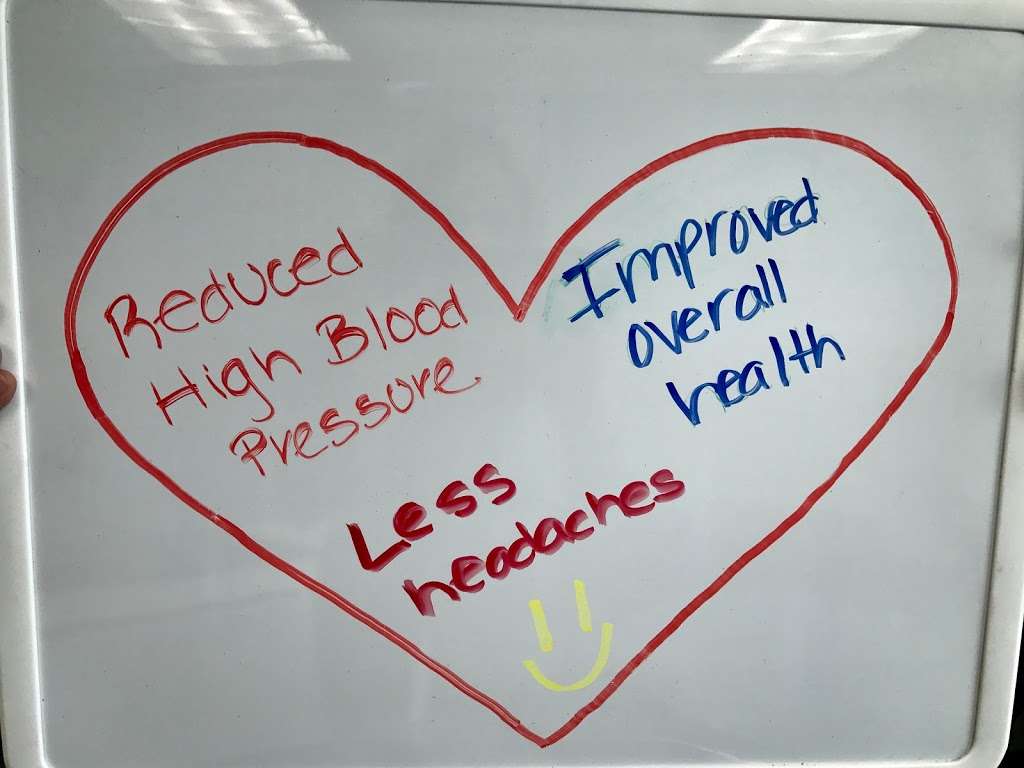 Reduced
High Blood
Pressure
Improved
overall
health
Less
headaches